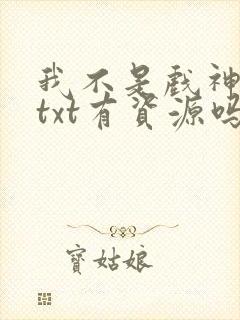 我不是戏神
txt有资源吗
寶姑娘